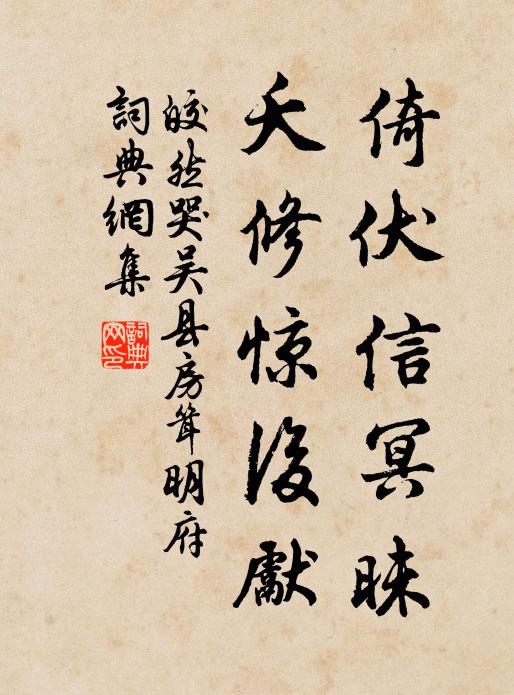 倚伏信冥昧
夭修惊後獻
皎然哭吴县房耸明府
詞典網集
詞典網印